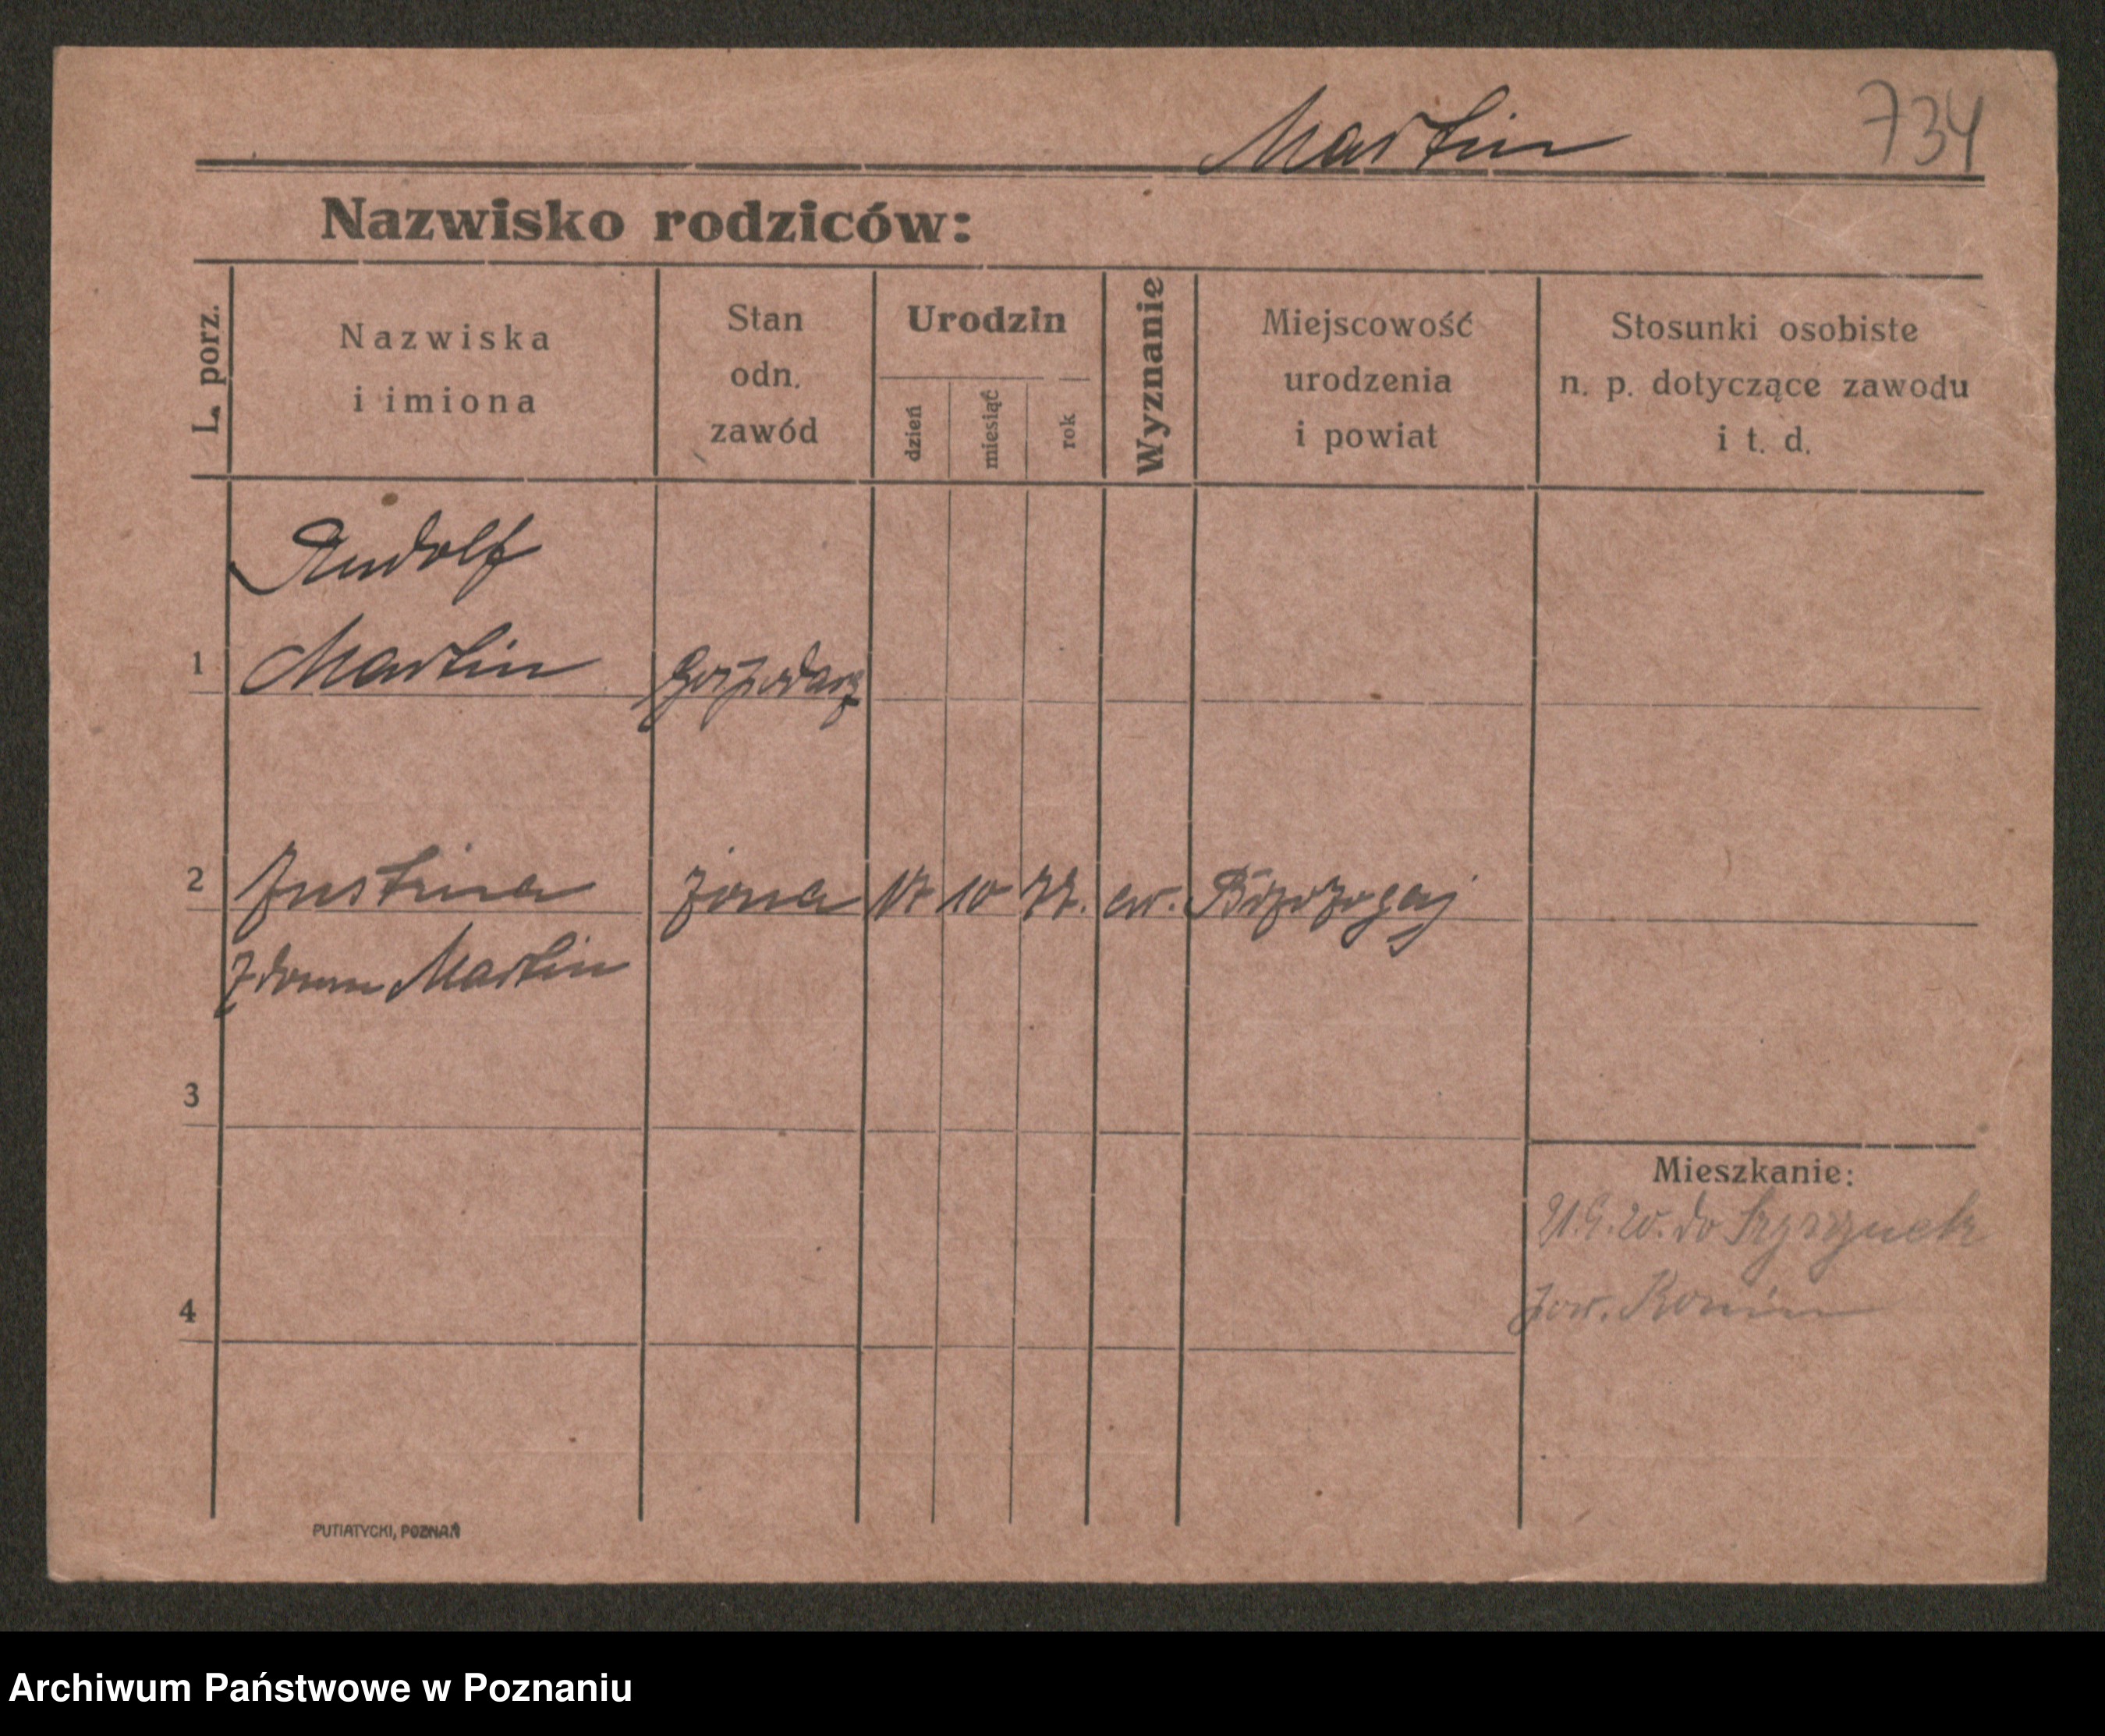 Martin
734
Nazwisko rodziców:
L. porz.
Nazwiska
i imiona
Stan
odn.
zawód
Urodzin
dzień
miesiąć
rok
Wyznanie
Miejscowość
urodzenia
i powiat
Stosunki osobiste
n. p. dotyczące zawodu
i t. d.
Rudolf
1 Martin Gospodarz
2 Justina żona 17 10 77. ew.
z domu Martin
3
Mieszkanie:
do
pow. Konin
4
PUTIATYCKI, POZNAŃ
Archiwum Państwowe w Poznaniu